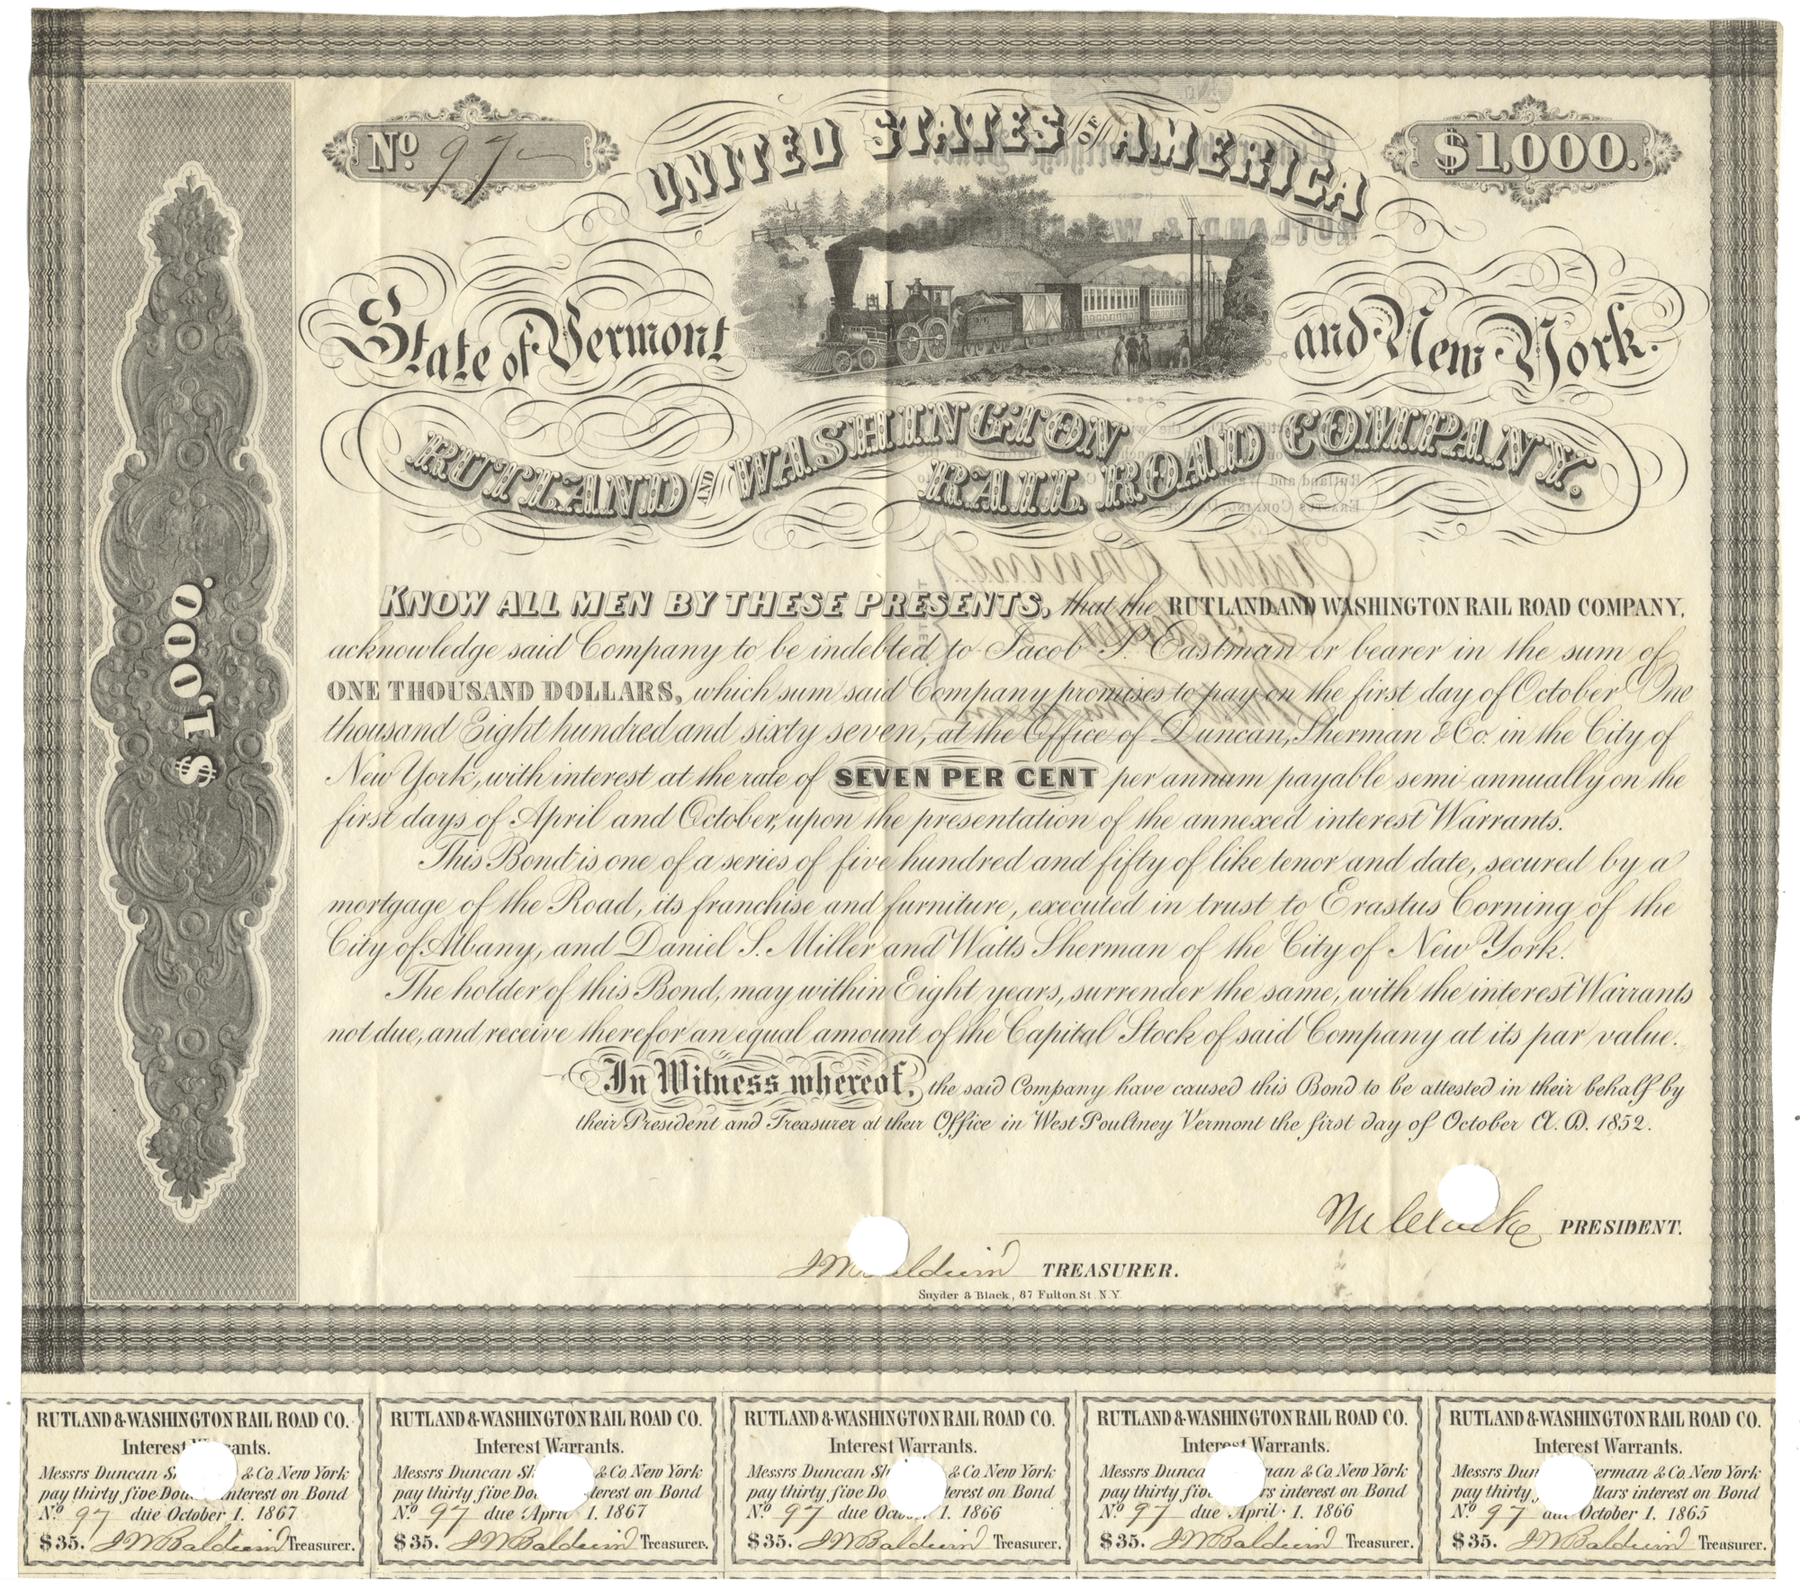 No. 97
UNITED STATES OF AMERICA
$1,000.
State of Vermont
and New York.
RUTLAND AND WASHINGTON
RAIL ROAD COMPANY.
$1,000.
KNOW ALL MEN BY THESE PRESENTS, that the RUTLAND AND WASHINGTON RAIL ROAD COMPANY,
acknowledge said Company to be indebted to Jacob P. Eastman or bearer in the sum of
ONE THOUSAND DOLLARS, which sum said Company promises to pay on the first day of October One
thousand Eight hundred and sixty seven, at the Office of Duncan, Sherman & Co. in the City of
New York, with interest at the rate of SEVEN PER CENT per annum payable semi annually on the
first days of April and October, upon the presentation of the annexed interest Warrants.
This Bond is one of a series of five hundred and fifty of like tenor and date, secured by a
mortgage of the Road, its franchise and furniture, executed in trust to Erastus Corning of the
City of Albany, and Daniel S. Miller and Watts Sherman of the City of New York.
The holder of this Bond, may within Eight years, surrender the same, with the interest Warrants
not due, and receive therefor an equal amount of the Capital Stock of said Company at its par value.
In Witness whereof, the said Company have caused this Bond to be attested in their behalf by
their President and Treasurer at their Office in West Poultney Vermont the first day of October A. D. 1852.
M Clarke PRESIDENT.
J W Baldwin TREASURER.
Snyder & Black, 87 Fulton St. N.Y.
RUTLAND & WASHINGTON RAIL ROAD CO.
Interest Warrants.
Messrs Duncan Sh & Co. New York
pay thirty five Dol interest on Bond
No. 97 due October 1. 1867
$35. J W Baldwin Treasurer.
RUTLAND & WASHINGTON RAIL ROAD CO.
Interest Warrants.
Messrs Duncan Sh & Co. New York
pay thirty five Dol terest on Bond
No. 97 due April 1. 1867
$35. J W Baldwin Treasurer.
RUTLAND & WASHINGTON RAIL ROAD CO.
Interest Warrants.
Messrs Duncan Sh & Co. New York
pay thirty five Do terest on Bond
No. 97 due Octo 1. 1866
$35. J W Baldwin Treasurer.
RUTLAND & WASHINGTON RAIL ROAD CO.
Interest Warrants.
Messrs Dunca man & Co. New York
pay thirty five rs interest on Bond
No. 97 due April 1. 1866
$35. J W Baldwin Treasurer.
RUTLAND & WASHINGTON RAIL ROAD CO.
Interest Warrants.
Messrs Dun herman & Co. New York
pay thirty llars interest on Bond
No. 97 due October 1. 1865
$35. J W Baldwin Treasurer.